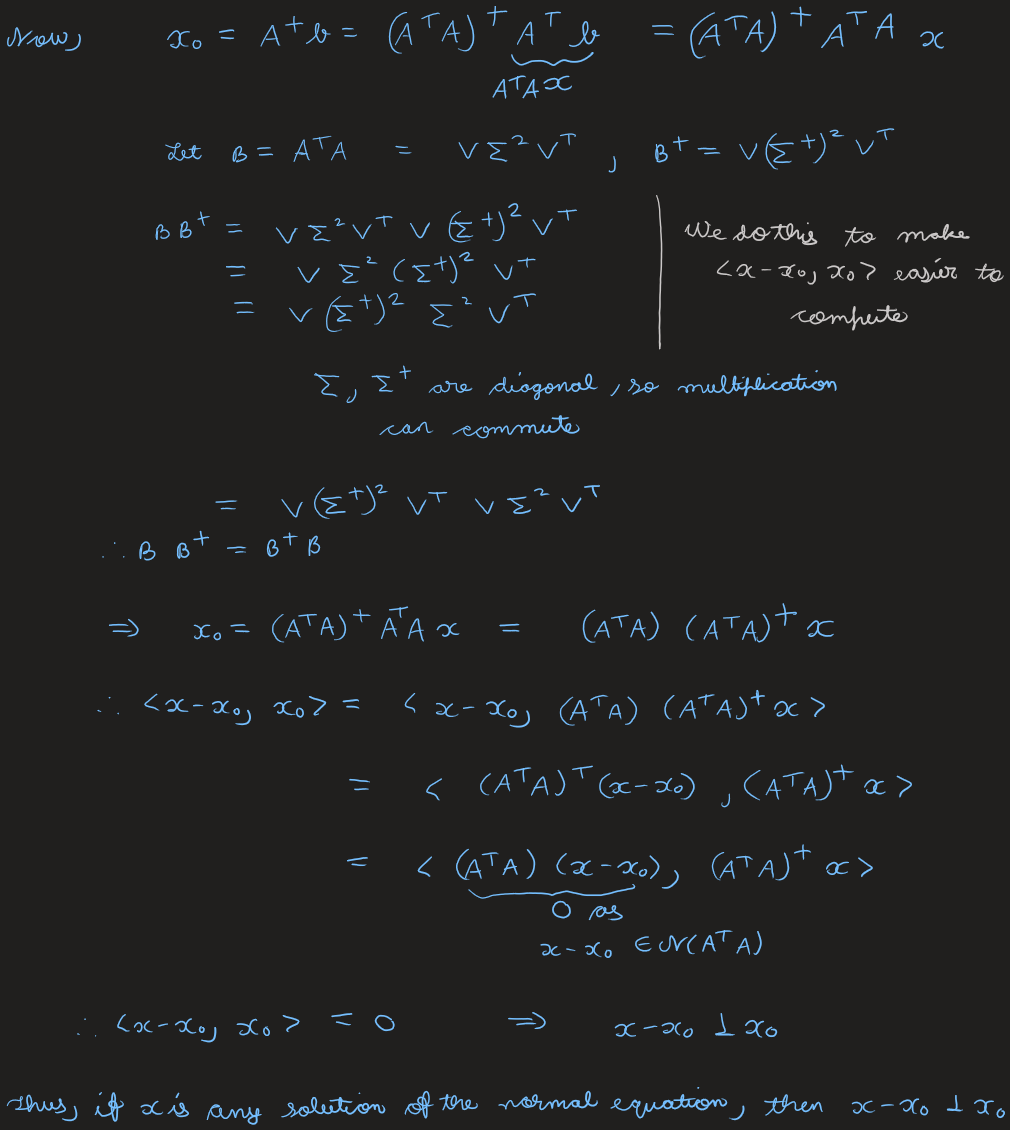 Now, x₀ = A⁺b = (AᵀA)⁺ Aᵀ b = (AᵀA)⁺ AᵀA x
AᵀAx
Let B = AᵀA = VΣ²Vᵀ , B⁺ = V(Σ⁺)² Vᵀ
BB⁺ = VΣ²Vᵀ V (Σ⁺)² Vᵀ
= V Σ² (Σ⁺)² Vᵀ
= V (Σ⁺)² Σ² Vᵀ
We do this to make
<x-x₀, x₀> easier to
compute
Σ, Σ⁺ are diagonal, so multiplication
can commute
= V(Σ⁺)² Vᵀ V Σ² Vᵀ
∴ B B⁺ = B⁺ B
⇒ x₀ = (AᵀA)⁺ AᵀA x = (AᵀA) (AᵀA)⁺ x
∴ <x-x₀, x₀> = < x-x₀, (AᵀA) (AᵀA)⁺ x >
= < (AᵀA)ᵀ (x-x₀) , (AᵀA)⁺ x >
= < (AᵀA) (x-x₀), (AᵀA)⁺ x >
0 as
x-x₀ ∈ N(AᵀA)
∴ <x-x₀, x₀ > = 0 ⇒ x-x₀ ⊥ x₀
Thus, if x is any solution of the normal equation, then x-x₀ ⊥ x₀